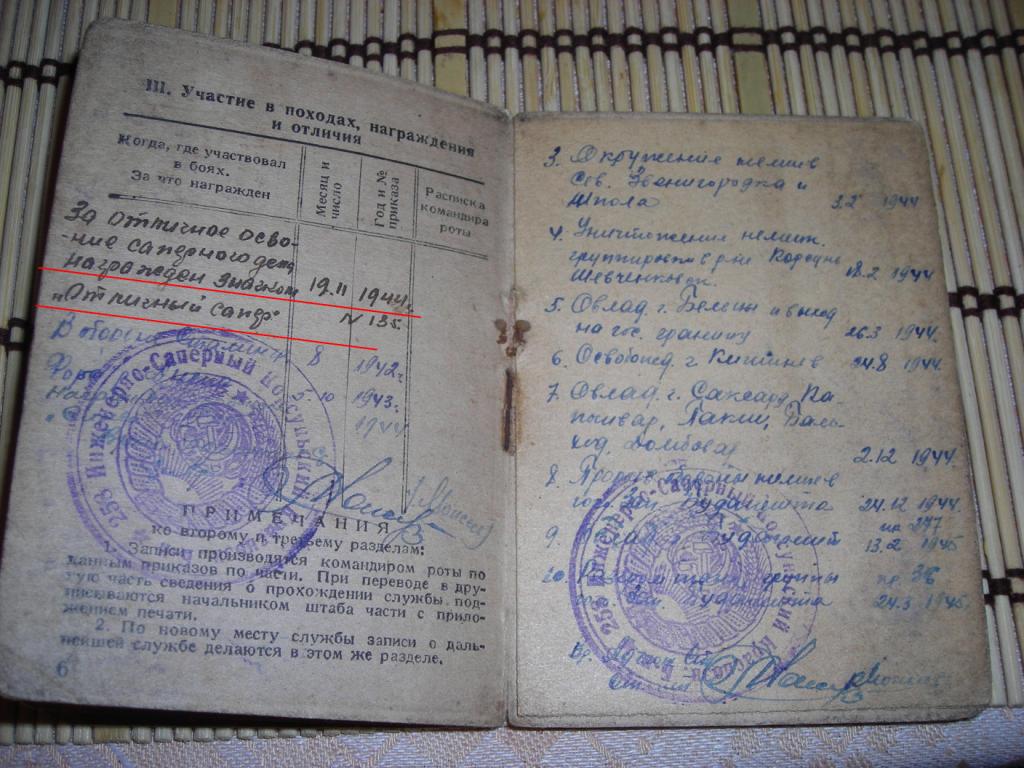 III. Участие в походах, награждения
и отличия
Когда, где участвовал
в боях.
За что награжден
Месяц и
число
Год и №
приказа
Расписка
командира
роты
За отличное осво-
-ние саперного дела
награжден значком 19.11 1944г.
"Отличный сапер" N 135.
В обороне 8 1942г.
10 1943г.
1944
253 Инженерно-Саперный Корсунский
ПРИМЕЧАНИЯ
ко второму и третьему разделам:
1. Записи производятся командиром роты по
данным приказов по части. При переводе в дру-
гую часть сведения о прохождении службы под-
писываются начальником штаба части с прило-
жением печати.
2. По новому месту службы записи о даль-
нейшей службе делаются в этом же разделе.
6
3. Окружение немцев
Сев. Звенигородка и
Шпола 3.2 1944
4. Уничтожение немецк.
группировки в р-не Корсунь
Шевченковск. 18.2 1944
5. Овлад. г. Бельцы и выход
на гос. границу 26.3 1944.
6. Освобожд. г. Кишинев 24.8 1944.
7. Овлад. г. Сексард, Ка-
пошвар, Пакш,
Домбовар 2.12 1944.
8. Прорыв обороны немцев
Будапешта 24.12 1944.
9. Овлад. г. Будапешт 13.2 1945
10. группы
Будапешта 24.3 1945.
253 Инженерно-Саперный Корсунский